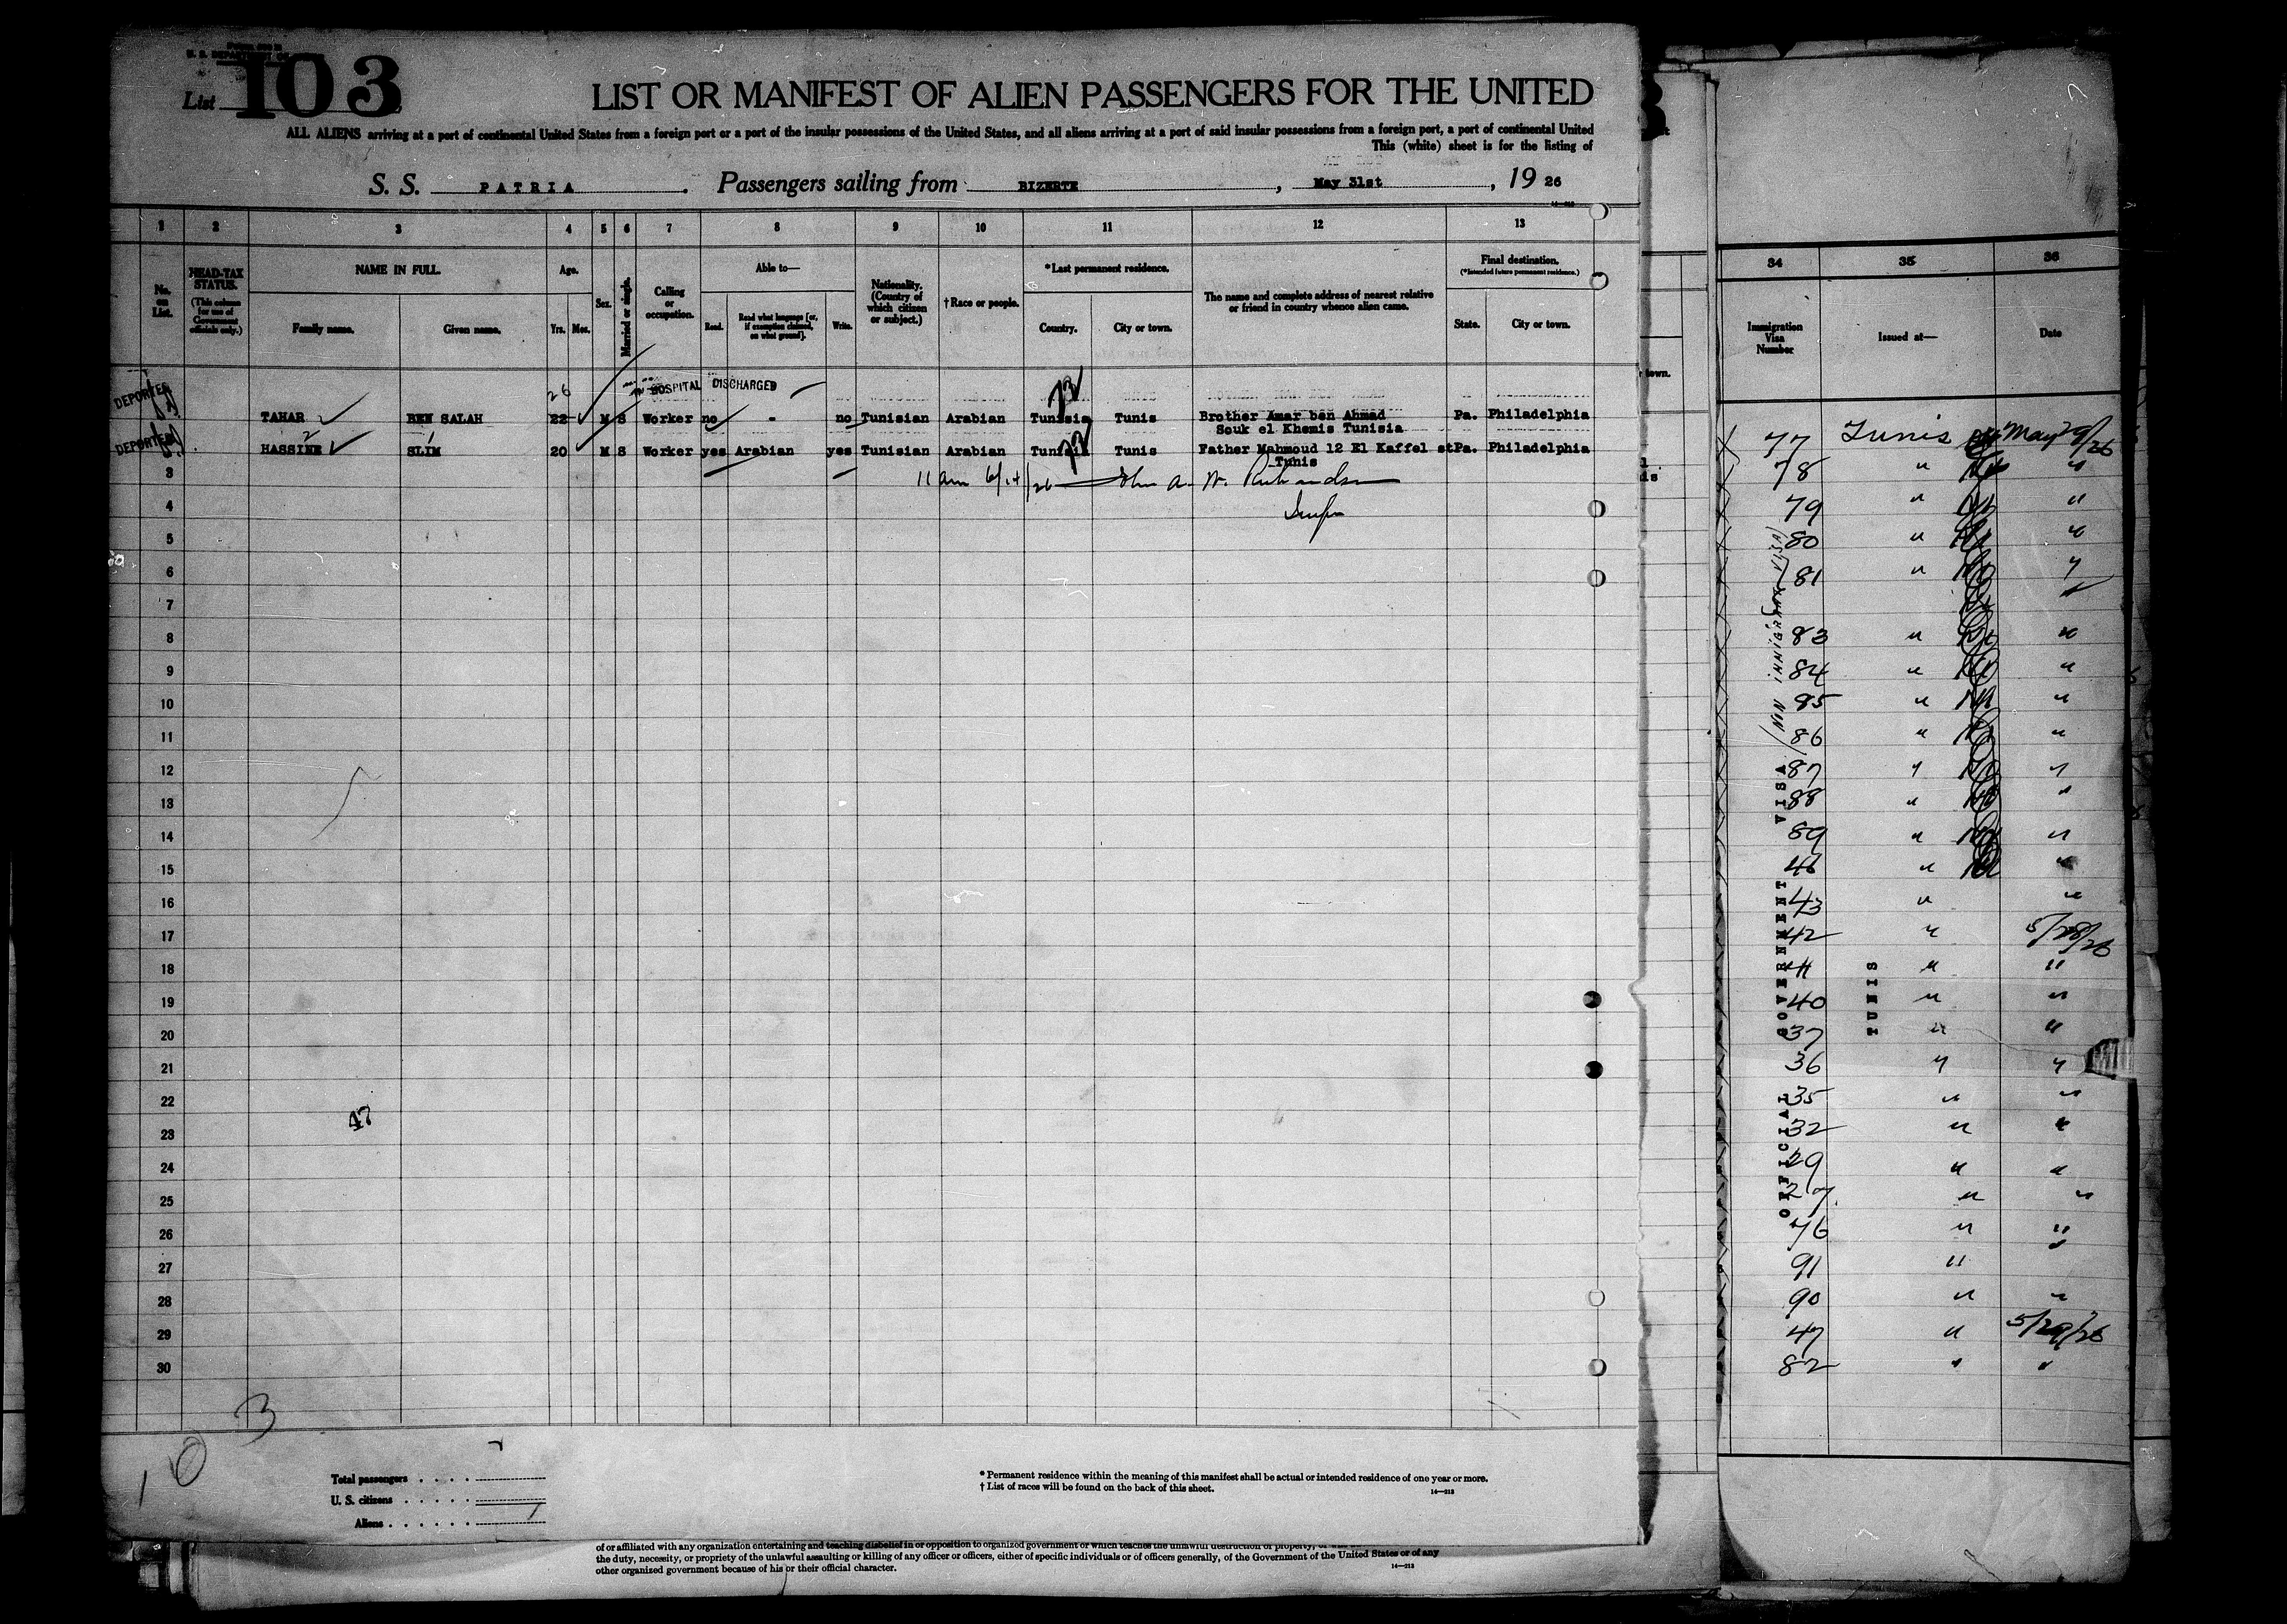 U. S. DEPARTMENT OF
List 103
LIST OR MANIFEST OF ALIEN PASSENGERS FOR THE UNITED
ALL ALIENS arriving at a port of continental United States from a foreign port or a port of the insular possessions of the United States, and all aliens arriving at a port of said insular possessions from a foreign port, a port of continental United
This (white) sheet is for the listing of
S. S. PATRIA . Passengers sailing from BIZERTE , May 31st , 19 26
14—213
1 2 3 4 5 6 7 8 9 10 11 12 13
No. on List.
HEAD-TAX STATUS. (This column for use of Government officials only.)
NAME IN FULL.
Family name. Given name.
Age.
Yrs. Mos.
Sex.
Married or single.
Calling or occupation.
Able to—
Read. Read what language [or, if exemption claimed, on what ground]. Write.
Nationality. (Country of which citizen or subject.)
†Race or people.
*Last permanent residence.
Country. City or town.
The name and complete address of nearest relative or friend in country whence alien came.
Final destination.
(*Intended future permanent residence.)
State. City or town.
26 HOSPITAL DISCHARGED
DEPORTED
TAHAR BEN SALAH 22 M S Worker no - no Tunisian Arabian Tunisia Tunis Brother Amar ben Ahmad Pa. Philadelphia
Souk el Khemis Tunisia
DEPORTED
HASSINE SLIM 20 M S Worker yes Arabian yes Tunisian Arabian Tunisia Tunis Father Mahmoud 12 El Kaffel st Pa. Philadelphia
Tunis
3
11 am 6/14/26 John A. W. Richardson
4
5
6
7
8
9
10
11
12
13
14
15
16
17
18
19
20
21
22
47
23
24
25
26
27
28
29
30
103
Total passengers
U. S. citizens
Aliens
* Permanent residence within the meaning of this manifest shall be actual or intended residence of one year or more.
† List of races will be found on the back of this sheet.
14—213
of or affiliated with any organization entertaining and teaching disbelief in or opposition to organized government or which teaches the unlawful destruction of property, or
the duty, necessity, or propriety of the unlawful assaulting or killing of any officer or officers, either of specific individuals or of officers generally, of the Government of the United States or of any
other organized government because of his or their official character.
14—213
town.
34 35 36
Immigration Visa Number
Issued at—
Date
77 Tunis May 29/26
78 " "
79 " "
80 " "
81 " "
83 " "
84 " "
85 " "
86 " "
87 " "
88 " "
89 " "
46 " "
43 " "
42 " 5/28/26
41 " "
40 " "
37 " "
36 " "
35 " "
32 " "
29 " "
27 " "
76 " "
91 " "
90 " "
47 " 5/29/26
82 " "
(NON IMMIGRANT VISA)
OFFICIAL GOVERNMENT VISA
TUNIS